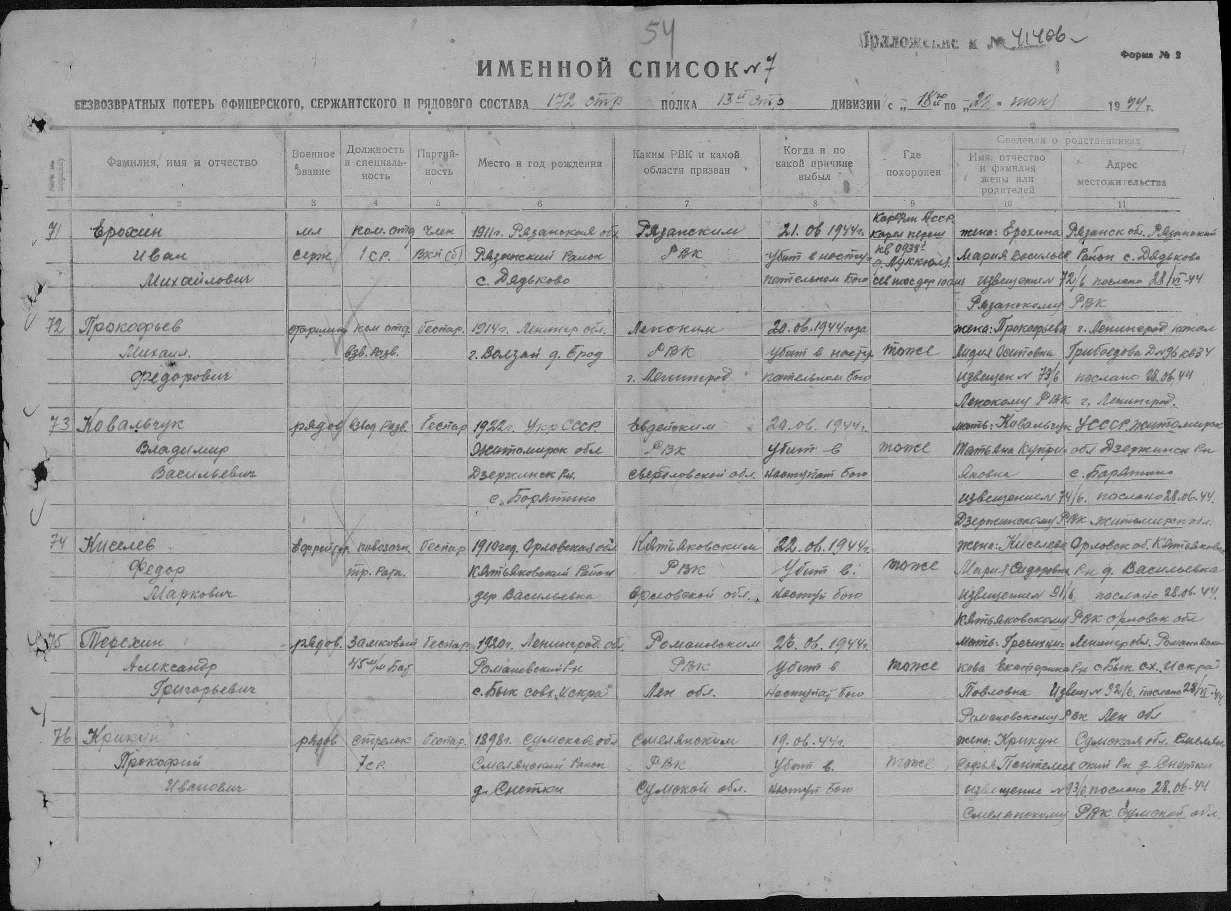 54
Приложение к № 41406
Форма № 2
ИМЕННОЙ СПИСОК № 7
БЕЗВОЗВРАТНЫХ ПОТЕРЬ ОФИЦЕРСКОГО, СЕРЖАНТСКОГО И РЯДОВОГО СОСТАВА 172 стр ПОЛКА 13й стр ДИВИЗИИ с „18 по „22" июня 1944 г.
Фамилия, имя и отчество Военное звание Должность и специальность Партийность Место и год рождения Каким РВК и какой области призван Когда и по какой причине выбыл Где похоронен Сведения о родственниках
Имя, отчество и фамилия жены или родителей Адрес местожительства
2 3 4 5 6 7 8 9 10 11
71 Ерохин мл ком. отд член 1911г. Рязанская обл Рязанским 21.06 1944г. жена: Ерохина Рязанск об. Рязанский
Иван серж 1 ср. ВКП(б) Рязанский Район РВК убит в насту Мария Район с. Дядьково
Михайлович с. Дядьково пательном бою извещением 72/6 послано 28/VI-44
Рязанскому РВК
72 Прокофьев ком отд беспар. 1914г. Ленингр обл. Ленским 20.06.1944года жена: Прокофьева г. Ленинград канал
Михаил взв. разв. д. Брод РВК убит в насту тоже Лидия Осиповна Грибоедова
Федорович г. Ленинград пательном бою извещен № 73/6 послано 28.06.44
Ленскому РВК г. Ленинград.
73 Ковальчук рядов взвод разв. беспар 1922г. Укр СССР РВК 20.06.1944г. мать: Ковальчук УССР Житомирск
Владимир Житомирск обл РВК убит в тоже Татьяна Купри обл Дзержинск Рн
Васильевич Дзержинск Рн. Свердловской обл. наступат бою яновна с.
извещением 74/6. послано 28.06.44.
Дзержинскому РВК Житомирск обл.
74 Киселев повозочн беспар 1910год. Орловская обл 22.06.1944г. жена: Киселева Орловск об.
Федор Район РВК Убит в. тоже Мария Сидоровна Рн д. Васильевка
Маркович дер Васильевка Орловской обл. наступ бою извещением 91/6 послано 28.06.44.
РВК Орловск обл
75 Терехин рядов. замковый беспар 1920г. Ленинград. обл. 1944г. мать: Ленингр обл.
Александр 45мм Бат РВК убит в тоже Екатерина Рн с. Бык сх. Искра
Григорьевич с. Бык совх „Искра" Лен обл. наступат бою Павловна Извещ № 92/6. послано 28/VI-44
РВК Лен обл
76 Крикун рядов стрелок беспар. 1898г. Сумская обл Смелянским 19.06.44г. жена: Крикун Сумская обл.
Прокофий 7 ср. Смелянский Район РВК Убит в. тоже Софья Рн д. Снетки
Иванович д. Снетки Сумской обл. наступ бою извещение № 93/6 послано 28.06.44
Смелянскому РВК Сумской обл.